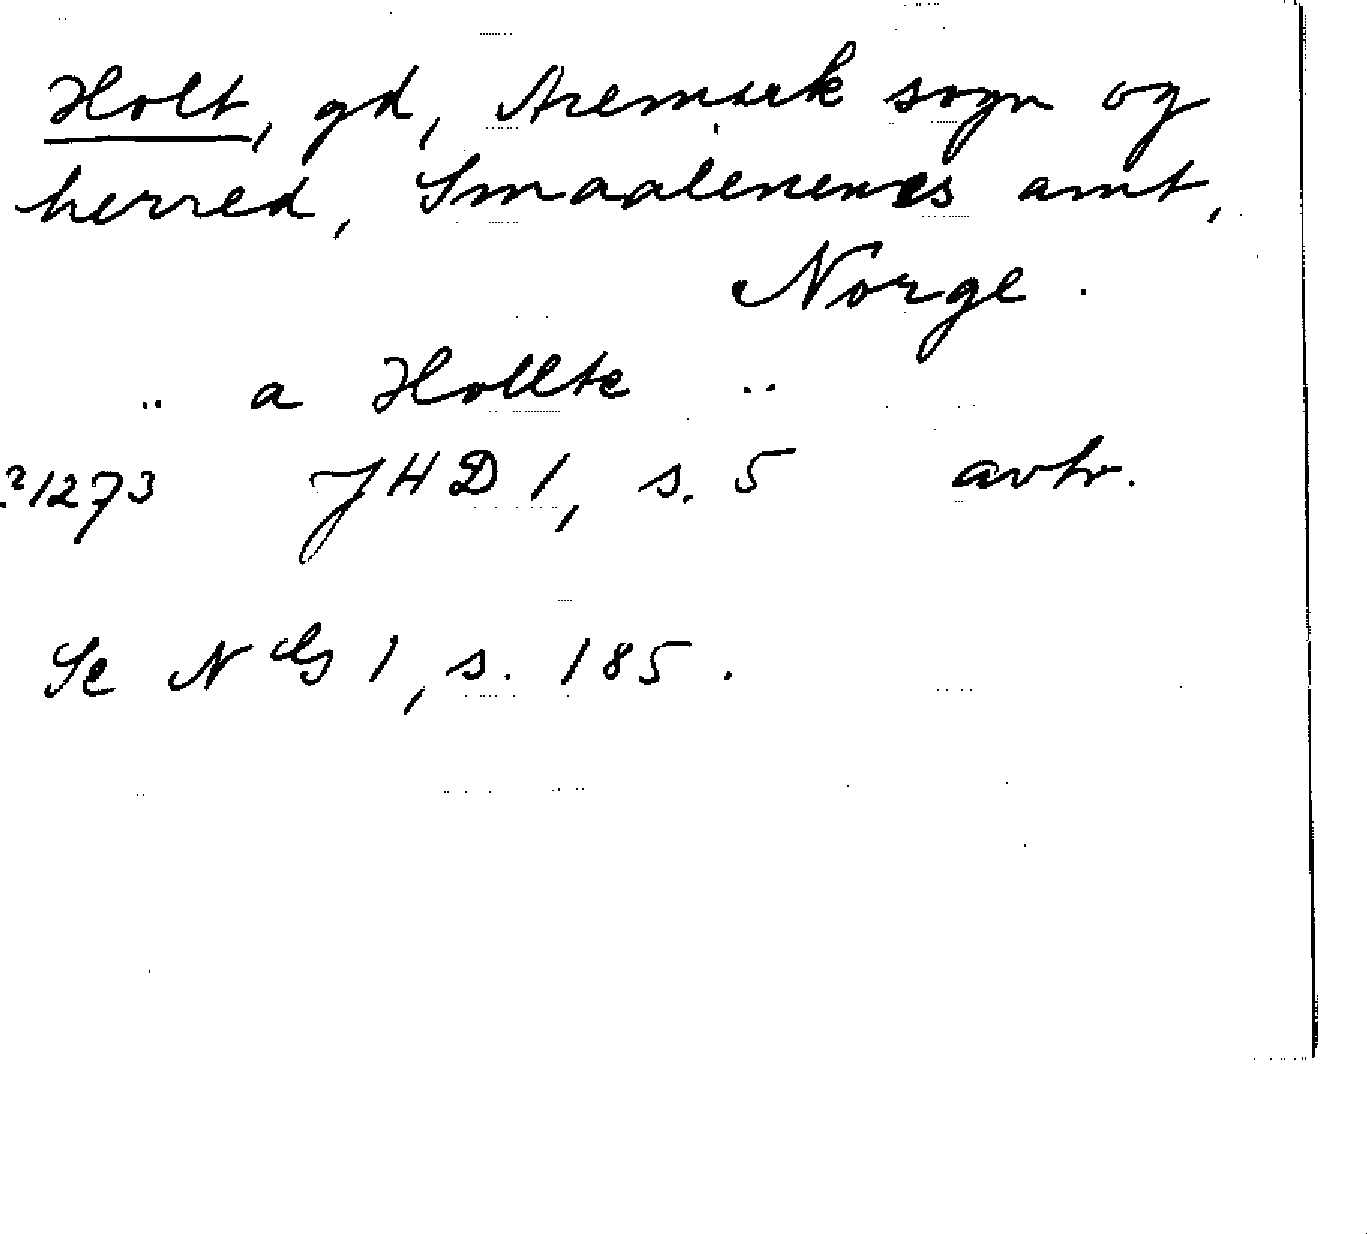 Holt, gd, Aremark sogn og
herred, Smaalenenes amt,
Norge.
.. a Hollte ..
?1273 JHD 1, s. 5 avtr.
Se NG 1, s. 185.